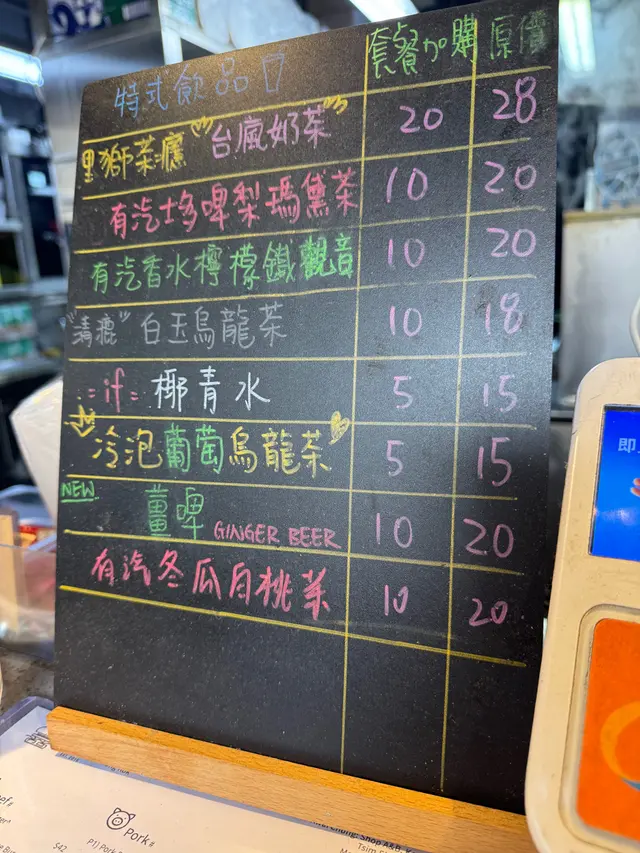 特式飲品 套餐加購 原價
黑獅茶濃 "台瘋奶茶" 20 28
有汽士多啤梨瑪黛茶 10 20
有汽香水檸檬鐵觀音 10 20
"清瘧" 白玉烏龍茶 10 18
=if= 椰青水 5 15
冷泡葡萄烏龍茶 5 15
NEW 薑啤 GINGER BEER 10 20
有汽冬瓜白桃茶 10 20
即
Pork
Tsim